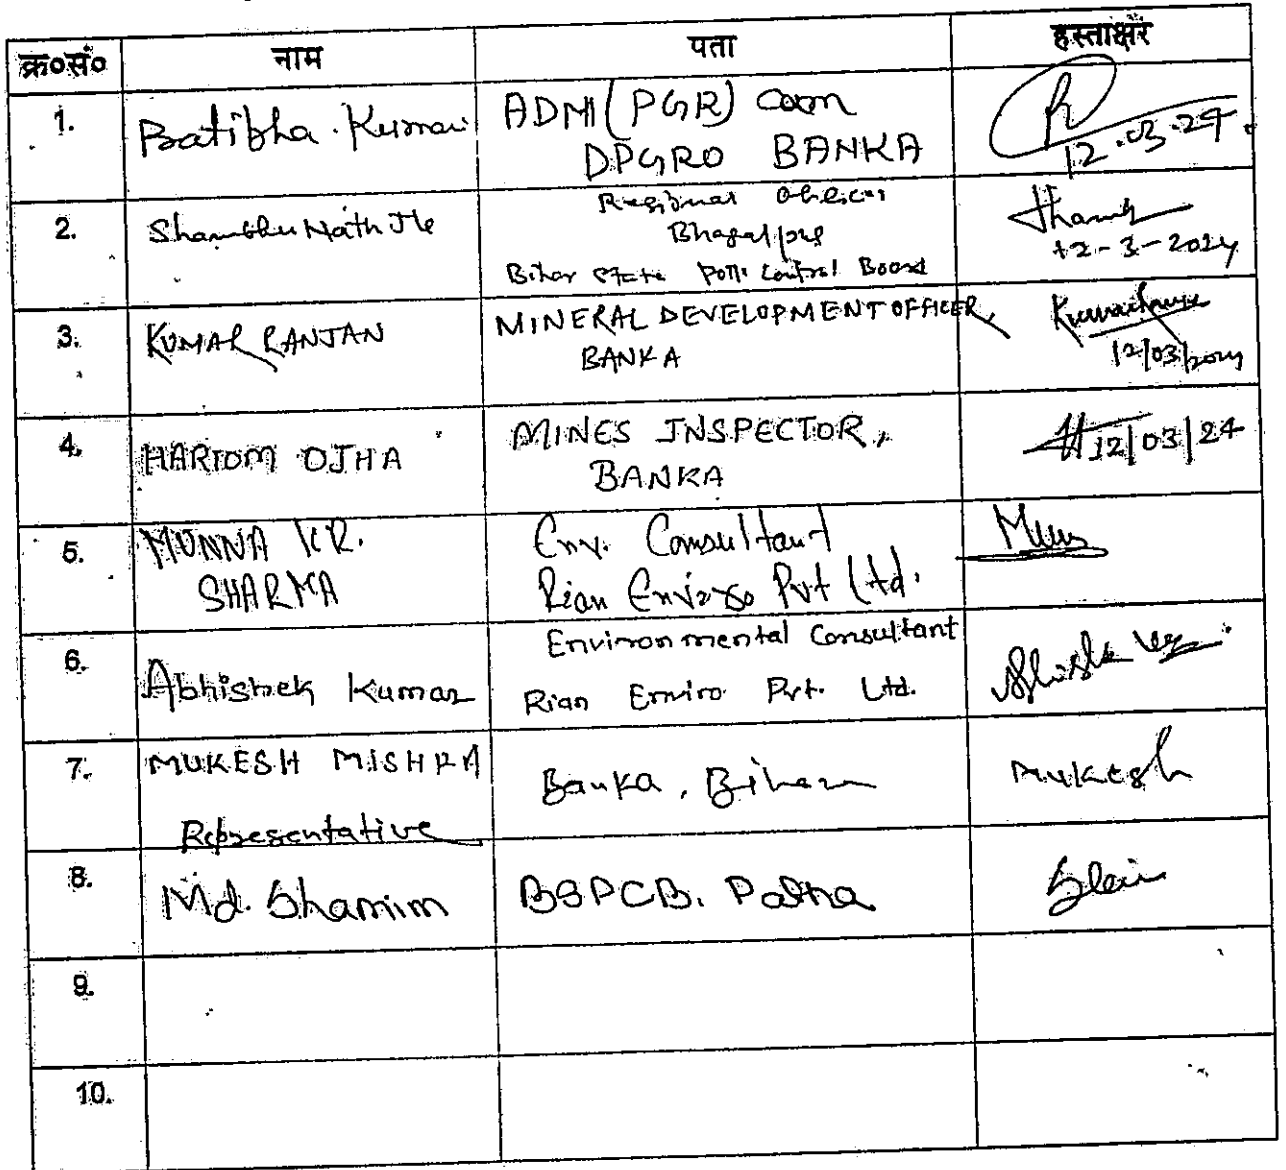 क्र०सं० नाम पता हस्ताक्षर
1. Pratibha Kumari ADM (PGR) cum
DPGRO BANKA
12.03.24.
2. Shambhu Nath Jha Regional Officer
Bhagalpur
Bihar State Polln Control Board
12-3-2024
3. KUMAR RANJAN MINERAL DEVELOPMENT OFFICER,
BANKA
12/03/2024
4. HARIOM OJHA MINES INSPECTOR,
BANKA
12/03/24
5. MUNNA KR.
SHARMA
Env. Consultant
Rian Enviro Pvt Ltd.
6. Abhishek Kumar Environmental Consultant
Rian Enviro Pvt. Ltd.
7. MUKESH MISHRA
Representative
Banka, Bihar
Mukesh
8. Md. Shamim BSPCB. Patna
9.
10.